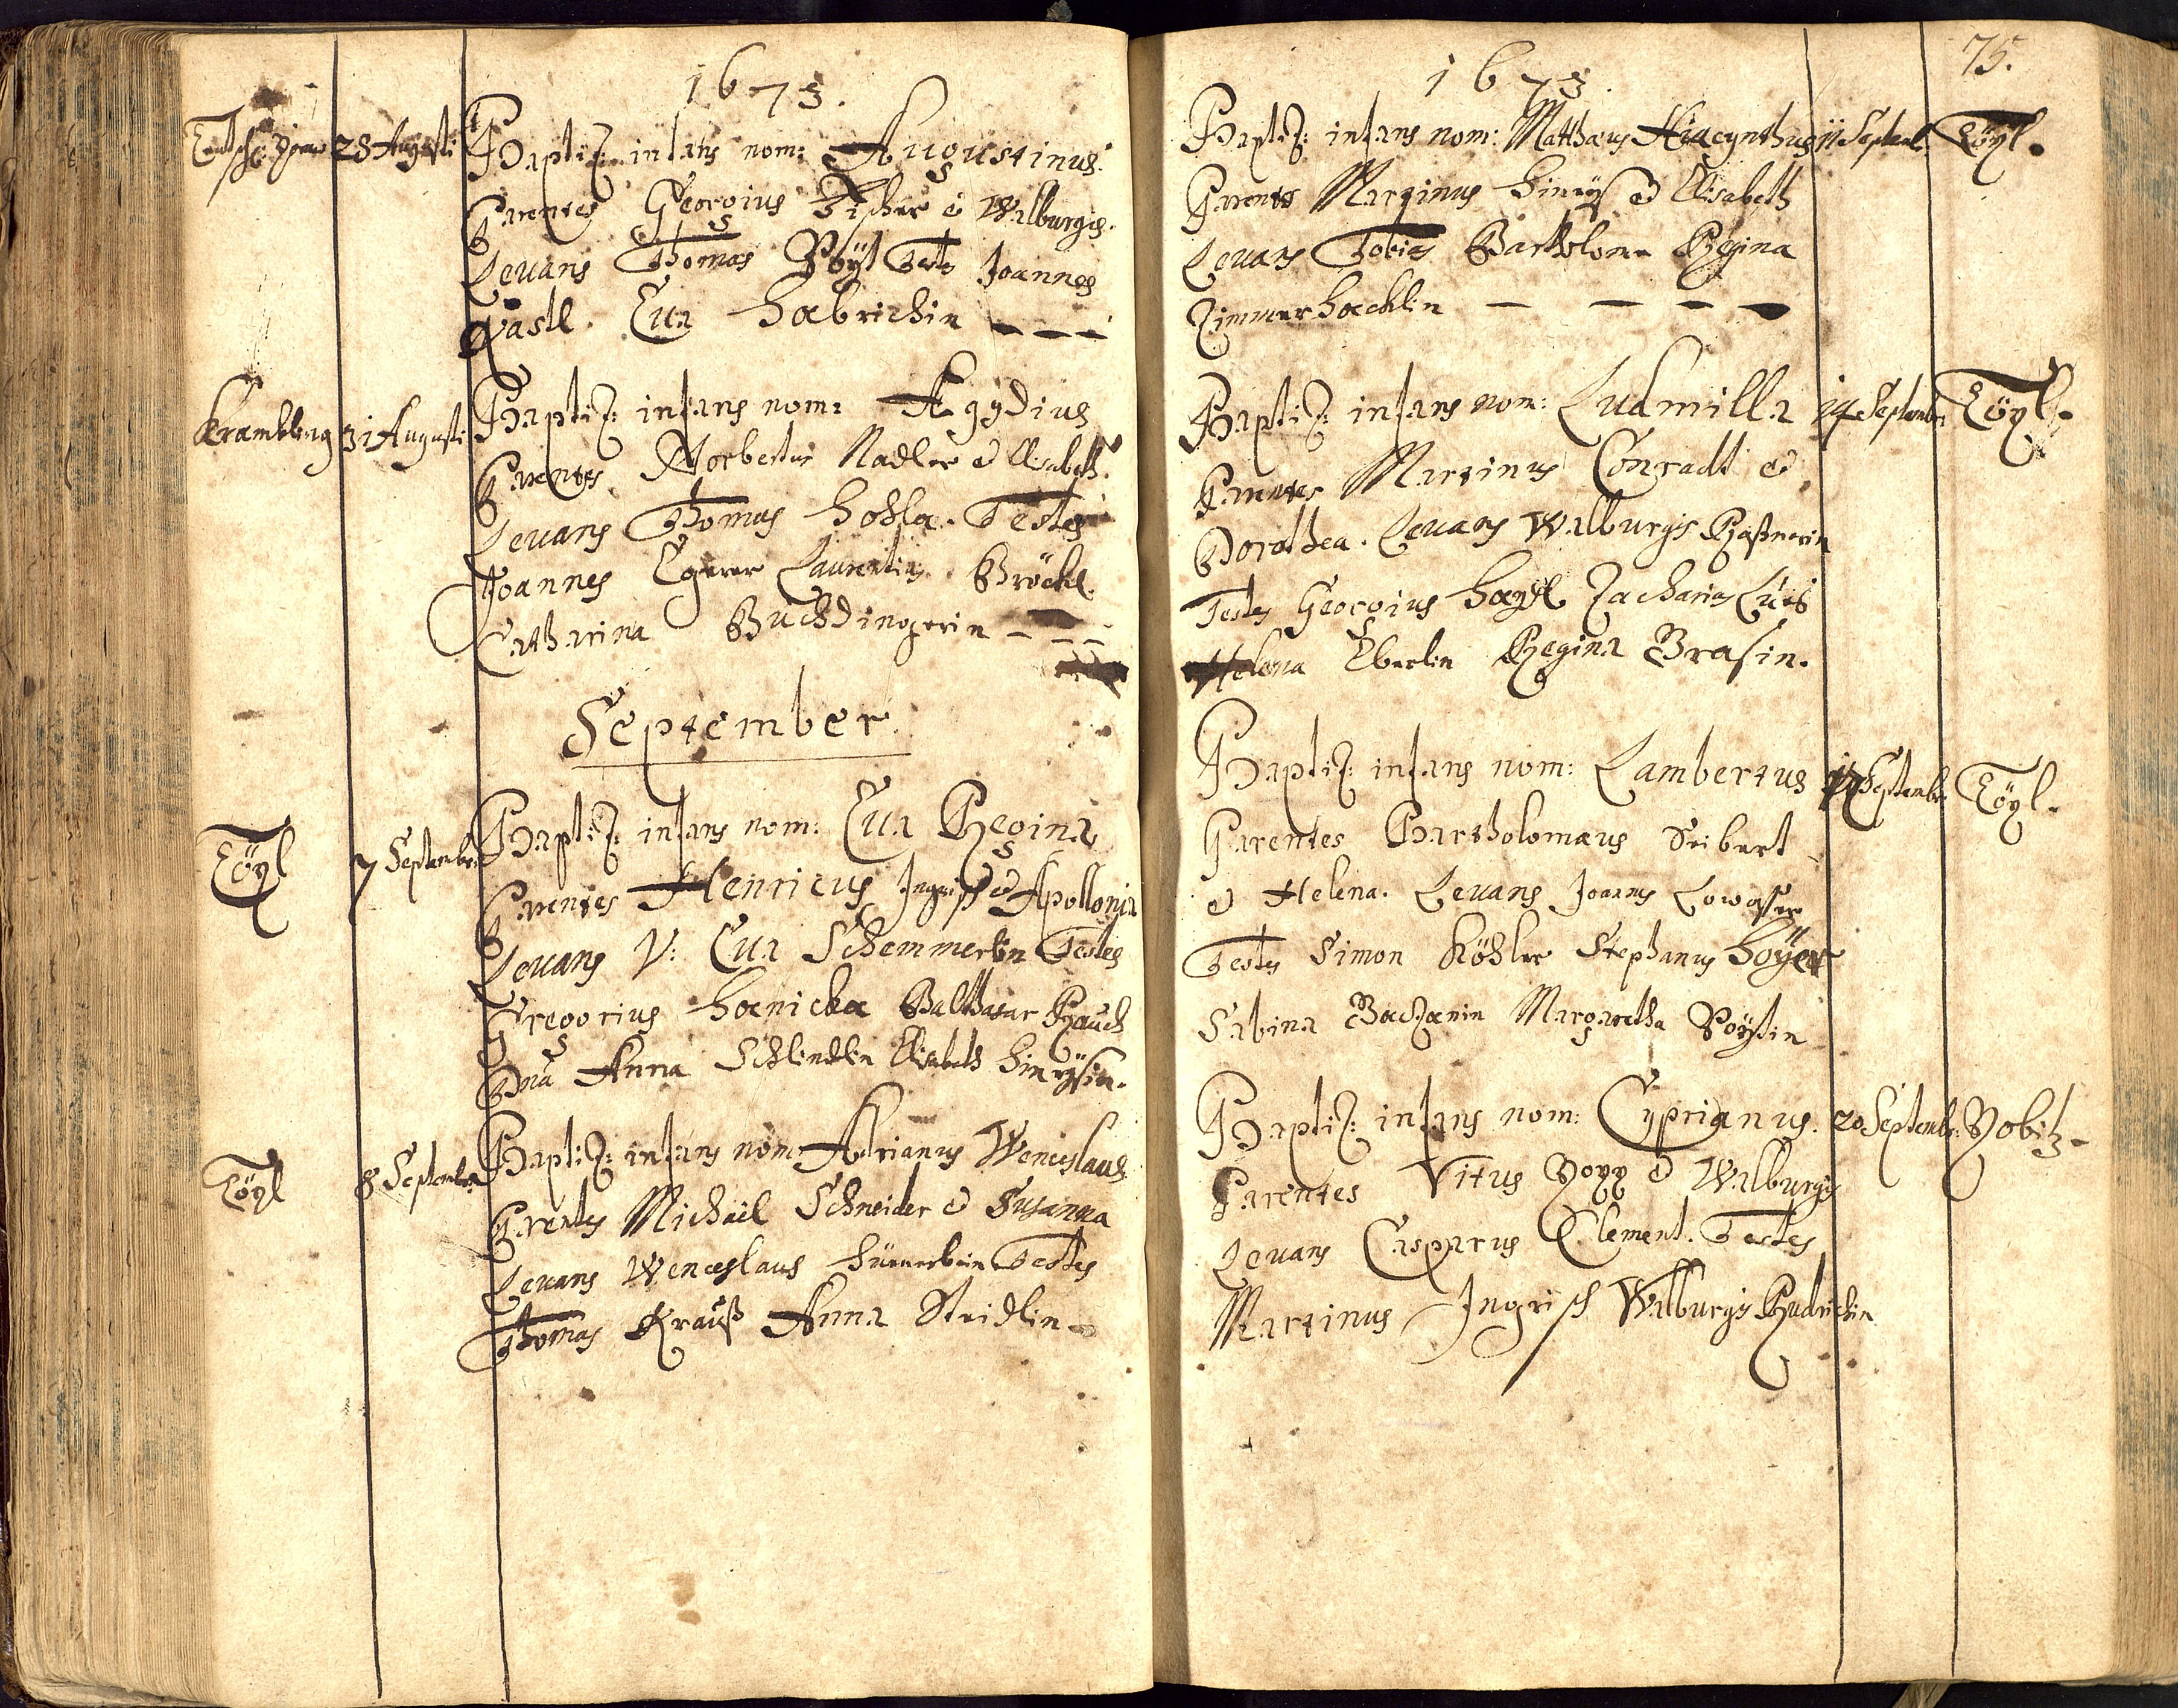 1673.
28 Augusti
Baptiz: infans nom: Augustinus.
Parentes Georgius Fischer et Walburgis.
Levans Thomas Poÿl Testes Joannes
Eva
Krambling 31 Augusti
Baptiz: infans nom: Aegydius
Parentes Norbertus Nadler et Elisabeth.
Levans Thomas Testes
Joannes Egerer Laurentius Bröckl.
Catharina Buchdingerin
September.
Töyl 7 Septembr:
Baptiz: infans nom: Eva Regina
Parentes Henricus Ingrisch et Apollonia
Levans V: Eva Schemmerlin Testes
Gregorius Haenicka Balthasar Rauch
Dna Anna Schlindlin Elisabeth
Töyl 8 Septembr
Baptiz: infans nom: Adrianus Wenceslaus
Parentes Michaël Schneider et Susanna
Levans Wenceslaus Testes
Thomas Krauß Anna
75.
1673.
Baptiz: infans nom: Matthaeus Hiacynthus 11 Septemb. Töyl.
Parentes Martinus et Elisabeth
Levans Tobias Bartholome Regina
Zimmerhacklin
Baptiz: infans nom: Ludmilla 14 Septembr Töyl.
Parentes Martinus Conradt et
Dorothea. Levans Walburgis
Testes Georgius Zacharias
Helena Eberlin Regina Brasin.
Baptiz: infans nom: Lambertus 17 Septembr. Töyl.
Parentes Bartholomaeus Seibert
et Helena. Levans Joannes
Testes Simon Köhler Stephanus Hoÿer
Sabina Margaretha
Baptiz: infans nom: Cyprianus. 20 Septembr.
Parentes Vitus et Walburgis
Levans Casparus Clement. Testes
Martinus Ingrisch Walburgis